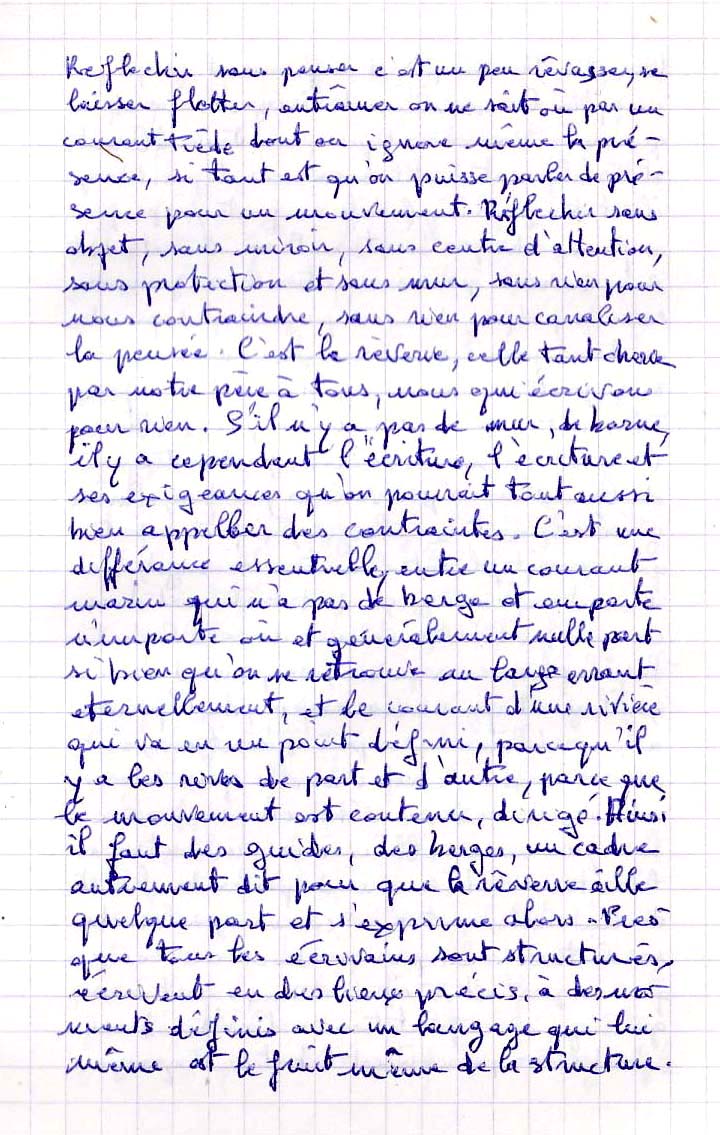 Reflechir sans penser c'est un peu rêvasser, se
laisser flotter, entrainer on ne sait où par un
courant tiède dont on ignore même la pré-
sence, si tant est qu'on puisse parler de pré-
sence pour un mouvement. Réflechir sans
objet, sans miroir, sans centre d'attention,
sans protection et sans mur, sans rien pour
nous contraindre, sans rien pour canaliser
la pensée. C'est la rêverie, celle tant cherie
par notre père à tous, nous qui écrivons
pour rien. S'il n'y a pas de mur, de borne,
il y a cependant l'écriture, l'écriture et
ses exigeances qu'on pourrait tout aussi
bien appeller des contraintes. C'est une
différance essentielle, entre un courant
marin qui n'a pas de berge et emporte
n'importe où et généralement nulle part
si bien qu'on se retrouve au large errant
eternellement, et le courant d'une rivière
qui va en un point défini, parcequ'il
y a les rives de part et d'autre, parce que
le mouvement est contenu, dirigé. Ainsi
il faut des guides, des berges, un cadre
autrement dit pour que la rêverie aille
quelque part et s'exprime alors. Pres
que tous les écrivains sont structurés,
écrivent en des lieux précis, à des mo
ments définis avec un langage qui lui
même est le fruit même de la structure.